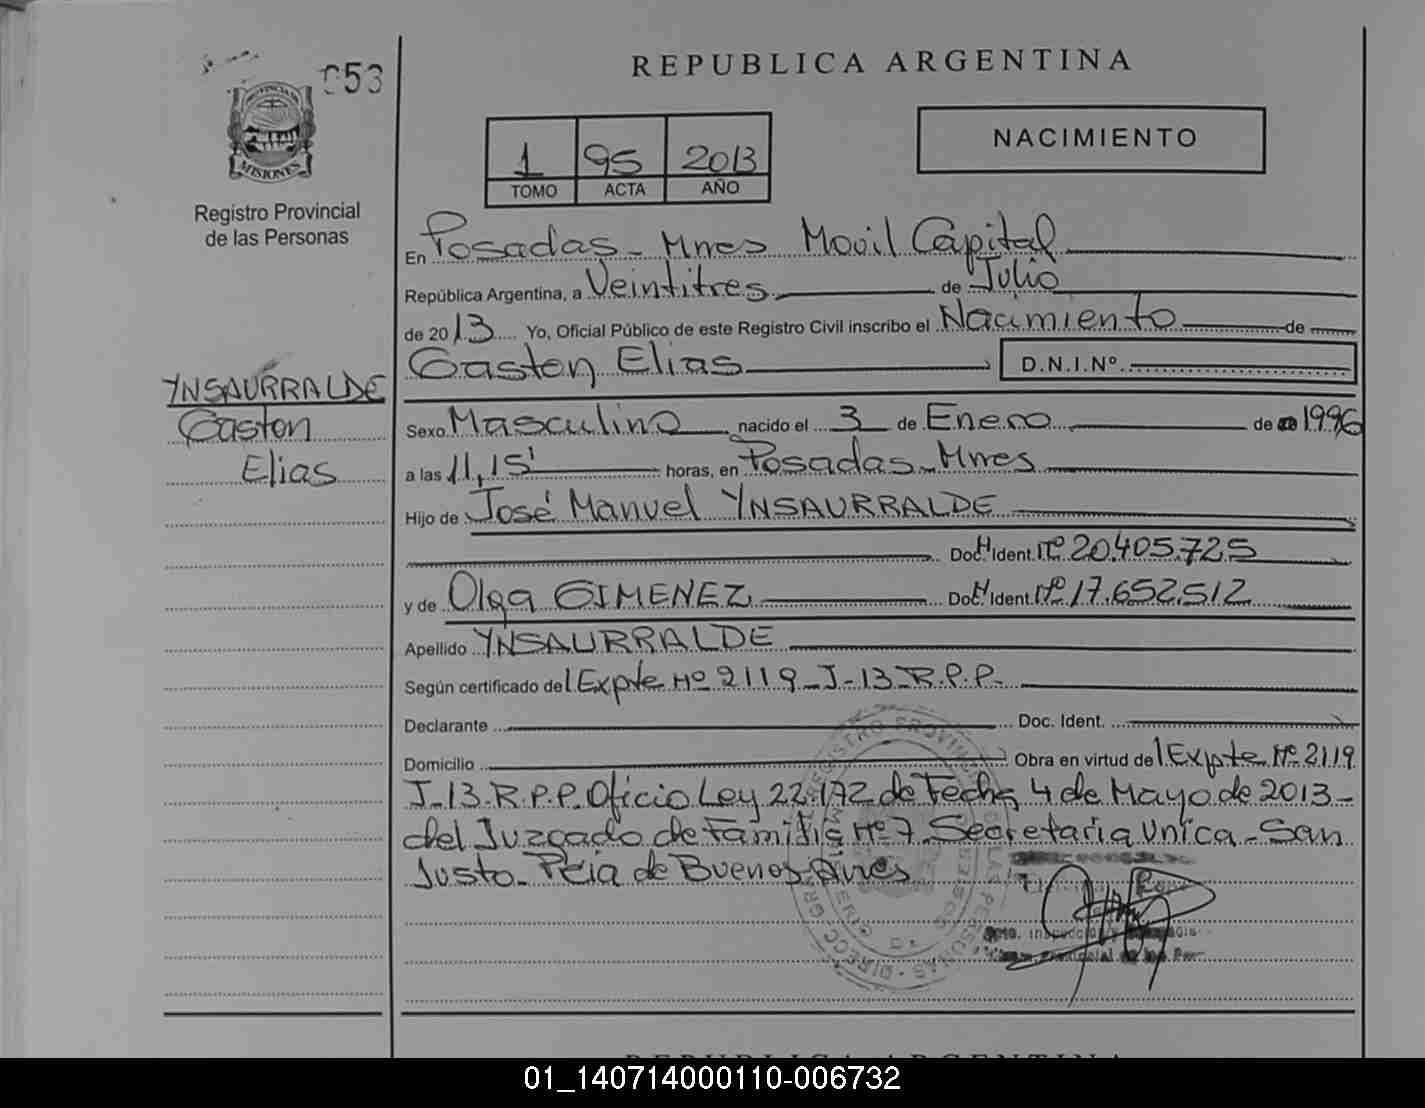 053
PROVINCIA DE
MISIONES
Registro Provincial
de las Personas
YNSAURRALDE
Gaston
Elias
REPUBLICA ARGENTINA
1 95 2013
TOMO ACTA AÑO
NACIMIENTO
En Posadas - Mnes Movil Capital
República Argentina, a Veintitres de Julio
de 2013 Yo, Oficial Público de este Registro Civil inscribo el Nacimiento de
Gaston Elias D.N.I.Nº
Sexo Masculino nacido el 3 de Enero de 1996
a las 11,15' horas, en Posadas - Mnes
Hijo de José Manuel YNSAURRALDE
Doc. Ident. Nº 20.405.725
y de Olga GIMENEZ Doc. Ident. Nº 17.652.512
Apellido YNSAURRALDE
Según certificado del Expte Nº 2119 - J - 13 - R.P.P.
Declarante Doc. Ident.
Domicilio Obra en virtud del Expte Nº 2119
J - 13 - R.P.P. Oficio Ley 22.172 de Fecha 4 de Mayo de 2013 -
del Juzgado de Familia Nº 7 - Secretaria Unica - San
Justo - Pcia de Buenos Aires
REPUBLICA ARGENTINA
01_140714000110-006732